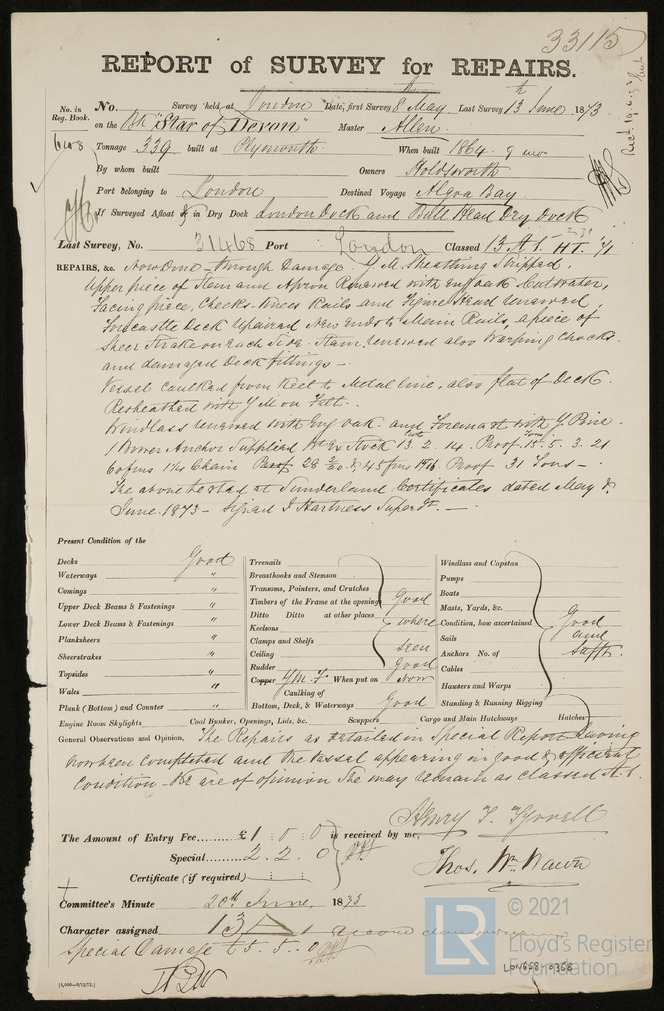 33115
REPORT of SURVEY for REPAIRS.
No. in Reg. Book.
No. Survey held at London Date, first Survey 8th May Last Survey 13th June 1873
on the Bk "Star of Devon" Master Allen
Tonnage 339 built at Plymouth When built 1864
By whom built Owners Holdsworth
Port belonging to London Destined Voyage Algoa Bay
If Surveyed Afloat & in Dry Dock London Dock and Bull Head Dry Dock
Last Survey, No. 31468 Port London Classed 13 A 1. HT. 71
REPAIRS, &c. Now Done - through Damage. Y.M. Sheathing Stripped.
Upper piece of Stem and Apron Renewed with Eng oak Cutwater,
Facing piece, Cheeks. Knees Rails and Figure Head renewed.
Forecastle Deck repaired New ends to Main Rails, a piece of
Sheer Strake on each Side. Stem renewed also Warping Chocks.
and damaged Deck fittings -
Vessel Caulked from Keel to Metal line, also flat of Deck.
Resheathed with Y M on Felt.
Windlass renewed with Eng oak. and Foremast with Y Pine.
1 Bower Anchor Supplied Wt Ex Stock 13. 2. 14. Proof 15. 5. 3. 21
60 fms 1 7/16 Chain Proof 28 & 45 fms Proof 31 Tons -
The above tested at Sunderland Certificates dated May &
June. 1873 - Signed J Hartness Superdt. -
Present Condition of the
Decks Good
Waterways "
Comings "
Upper Deck Beams & Fastenings "
Lower Deck Beams & Fastenings "
Planksheers "
Sheerstrakes "
Topsides "
Wales "
Plank (Bottom) and Counter "
Treenails
Breasthooks and Stemson
Transoms, Pointers, and Crutches
Timbers of the Frame at the openings Good
Ditto Ditto at other places where
Keelsons
Clamps and Shelfs seen
Ceiling
Rudder Good
Copper Y.M. F. When put on Now
Caulking of
Bottom, Deck, & Waterways Good
Windlass and Capstan
Pumps
Boats
Masts, Yards, &c.
Condition, how ascertained Good
Sails and
Anchors No. of Sufft.
Cables
Hawsers and Warps
Standing & Running Rigging
Engine Room Skylights Coal Bunker, Openings, Lids, &c. Scuppers Cargo and Main Hatchways Hatches
General Observations and Opinion, The Repairs as detailed in Special Report having
now been completed and the vessel appearing in good & efficient
condition - We are of opinion She may remain as classed A.1.
Henry T. Tyrrell
The Amount of Entry Fee £1 : 0 : 0 is received by me,
Special 2. 2. 0
Thos. Wm. Wawn
Certificate (if required)
Committee's Minute 20th June, 1873
Character assigned 13 A 1
Special Damage £5. 5. 0
[1,000—9/12/72.]
LR © 2021
Lloyd's Register
Foundation
LON668-0368